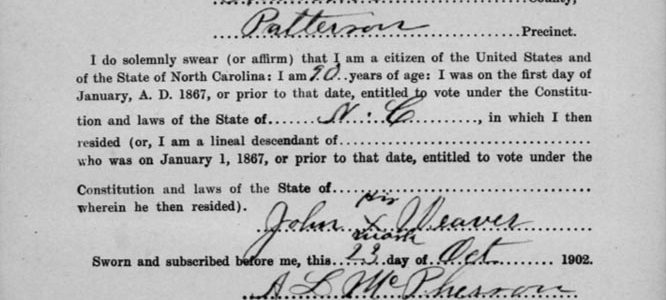 County,
Patterson Precinct.
I do solemnly swear (or affirm) that I am a citizen of the United States and
of the State of North Carolina: I am 90 years of age: I was on the first day of
January, A. D. 1867, or prior to that date, entitled to vote under the Constitu-
tion and laws of the State of N. C , in which I then
resided (or, I am a lineal descendant of
who was on January 1, 1867, or prior to that date, entitled to vote under the
Constitution and laws of the State of
wherein he then resided).
his
John X Weaver
mark
Sworn and subscribed before me, this 23 day of Oct. 1902.
A L McPherson